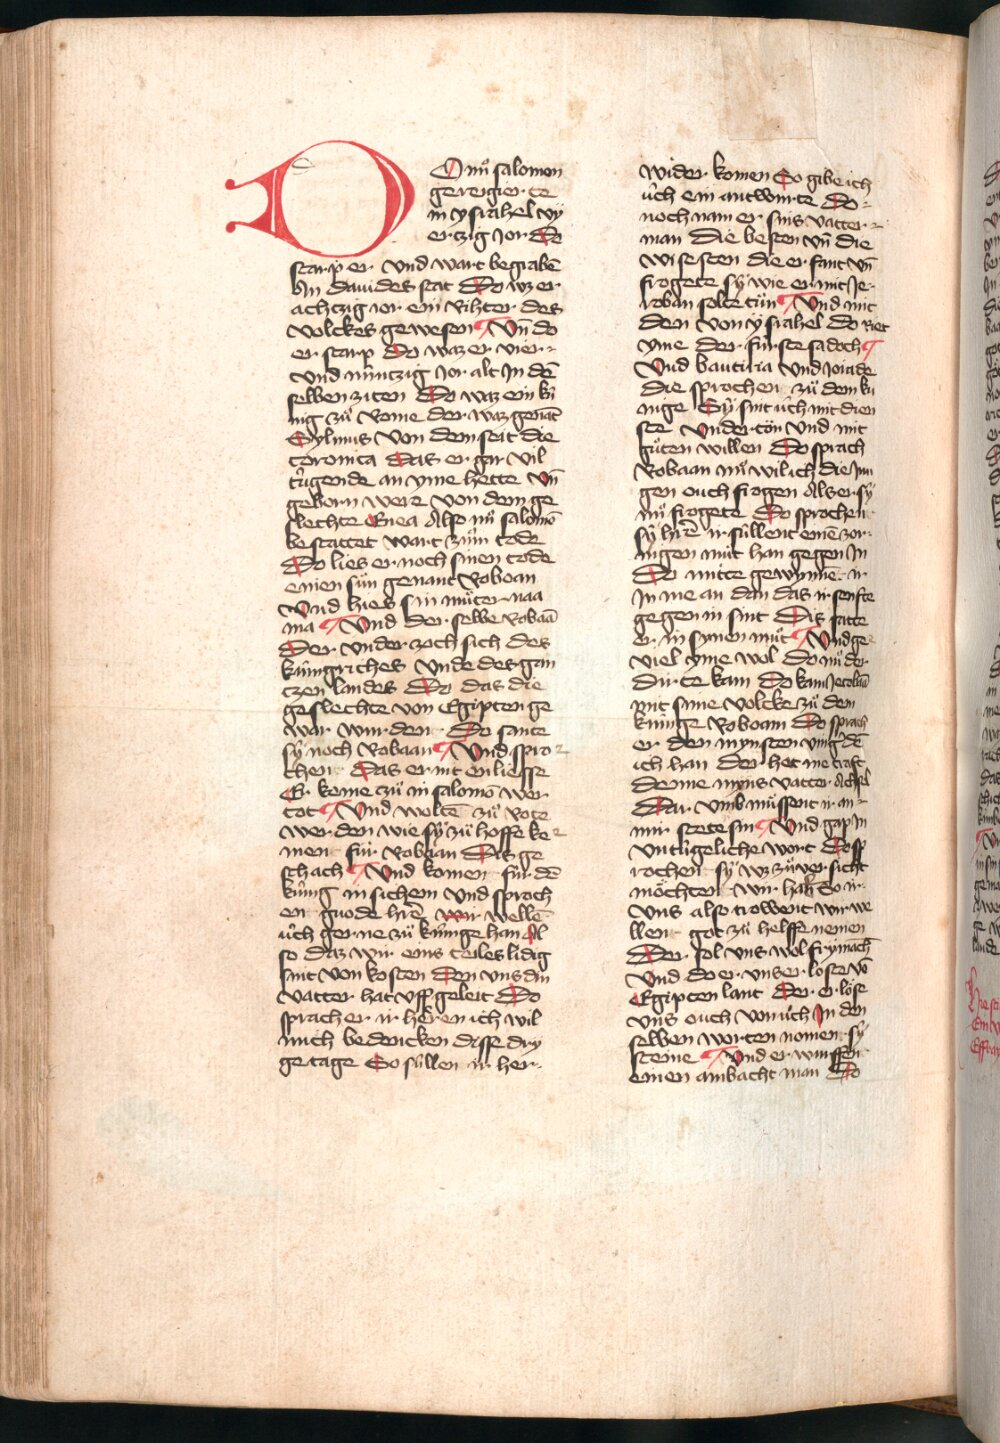 DO nuͦ salomon
gereigier te
in ysrahel vÿ
erczig Jor Do
starp er Vnd wart begrabē
In dauides stat Do wz er
achczig ior ein Rihter des
volckes gewesen ¶ Vn̄ do
er starp Do waz er vier-
vnd nüntzig Jor alt In dē
selben ziten Do waz ein kú
nig zuͦ Rome der waz genāt
Sylmus Von dem seit die
coronica Das er gar vil
túgende an yme hette Vn̄
geborn were von dem ge
slechte Enea Also nuͦ salomō
bestattet wart zuͦm tode
Do lies er noch sinen tode
einen sún genant Roboan
Vnd hies sin muͦter naa
ma ¶ Vnd der selbe Robaā
Der vnder zoch sich des
kúnigriches Vnde des gan
czen landes Do das die
geslechte von Egipten ge
war wurden Do sante
sÿ noch Robaan ¶ Vnd spro-
chen Das er nit enliesse
Er keme zuͦ in salomō wer
tot ¶ Vnd woltē zuͦ Rote
werden wie sÿ zuͦ hoffe ke-
ment fúr Robaan Dis ge
schach ¶ Vnd komen fúr dē
kúnig in sichem Vnd sproch
en gnode hrē wir wellē
úch gerne zuͦ kúnige han Al
so daz wir eins teiles lidig
sint von kosten Den vns din
vatter hat vff geleit Do
sprach er ir herren ich wil
mich bedencken disse dry
getage So súllen ir her
wider komen So gibe ich
úch ein antwurte Do
noch nam er sins vatter
man Die besten vn̄ die
wisesten die er fant vn̄
frogete sÿ wie er mit Je-
roban solte tuͦn ¶ Vnd mit
den von ysrahel do Riet
yme der fúrste sadoch ¶
Vnd bautiria Vnd Joiade
die sprochen zuͦ dem kú
nige Sÿ sint úch mit dien
ste Vndertön Vnd mit
guͦten willen Do sprach
Robaan nuͦ wil ich die Jun
gen ouch frogen Als er sÿ
nuͦ frogete Do sprochen
sÿ hrē ir súllent einē zor-
nigen muͦt han gegen In
Do mitte gewynnē ir
In me an dan das ir senfte
gegen in sint Dis satte
er in synen muͦt ¶ Vnd ge
viel yme wol Do nuͦ der
dirte kam Do kam Jerobaā
mit sime volcke zuͦ dem
kúnige Roboam Do sprach
er den mynsten vinger dē
ich han der het me craft
denne myns vatter Achsel
Dar vmb muͤssent ir an
mir stete sin ¶ Vnd gap In
vntúgeliche wort Do sp
rochen sÿ wz zuͦversicht
möchten wir han So ir
vns also trowent wir we
llent got zuͦ helffe nemen
Der sol vns wol frÿ mach
Vnd do er vnser loste vō
Egipten lant Der er löse
vns ouch von úch In den
selben worten nomen sÿ
steine ¶ Vnd er wurffen
einen ambacht man Do